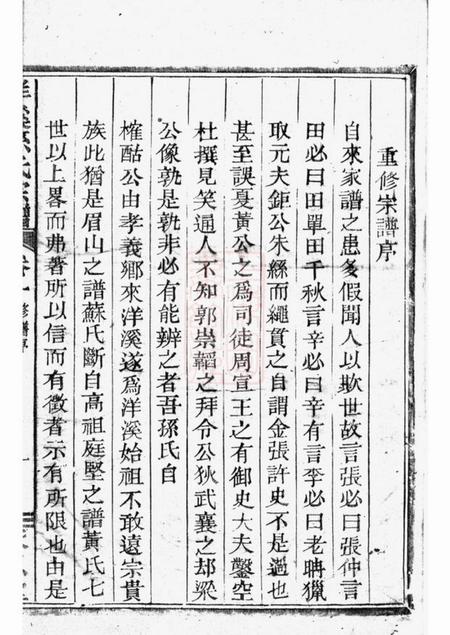 重修宗譜序
自來家譜之患多假聞人以欺世故言張必曰張仲言
田必曰田單田千秋言辛必曰辛有言李必曰老聃獵
取元夫鉅公朱繇而繩貫之自謂金張許史不是過也
甚至誤夏黃公之爲司徒周宣王之有御史大夫鑿空
杜撰見笑通人不知郭崇韜之拜令公狄武襄之却梁
公像孰是孰非必有能辨之者吾孫氏自
榷酤公由孝義鄉來洋溪遂爲洋溪始祖不敢遠宗貴
族此猶是眉山之譜蘇氏斷自高祖庭堅之譜黃氏七
世以上畧而弗著所以信而有徵者示有所限也由是
氏宗譜
卷一
修譜序
一